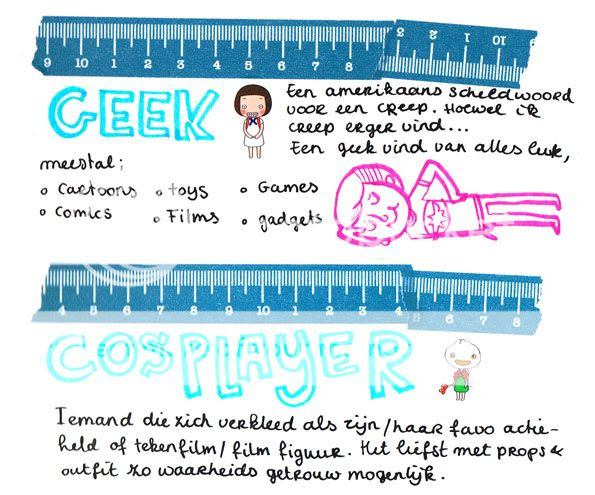 1 2 3 4 5 6 7 8 9 10 1 2 1 10
GEEK
Een amerikaans scheldwoord
voor een creep. Hoewel ik
creep erger vind...
Een geek vind van alles leuk,
meestal;
cartoons
toys
Games
comics
Films
gadgets
4 5 6 7 8 9 10 1 2 3 4 5 6 7 8
COSPLAYER
Iemand die zich verkleed als zijn/haar favo actie-
held of tekenfilm/film figuur. Het liefst met props &
outfit zo waarheids getrouw mogenlijk.